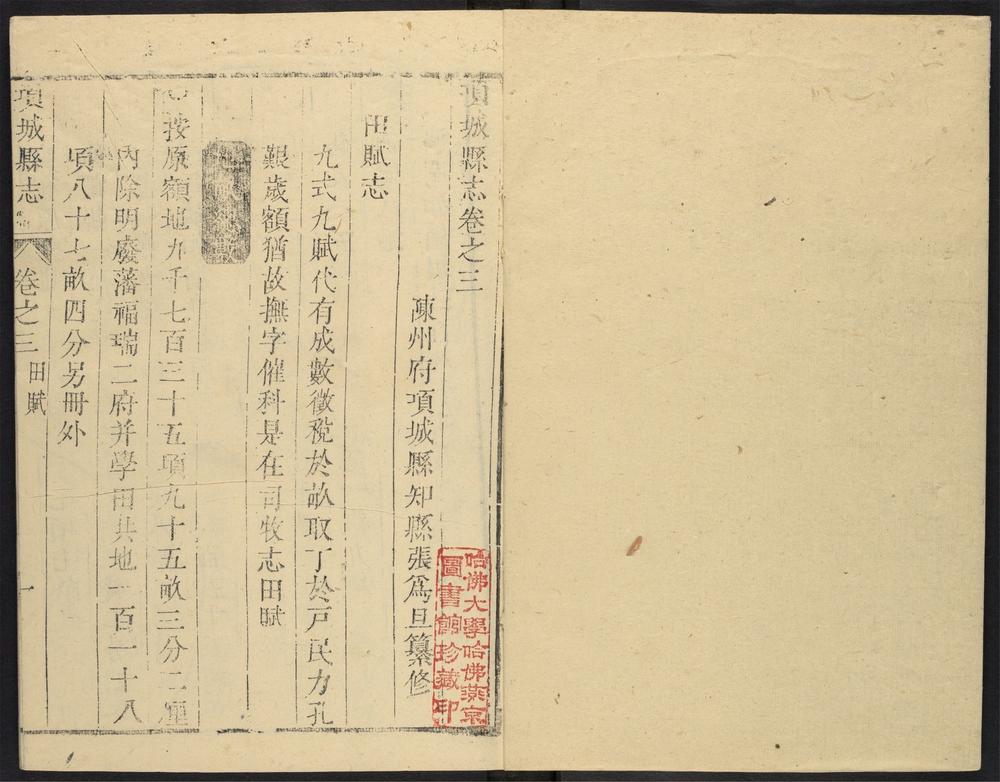 項城縣志卷之三
陳州府項城縣知縣張為旦纂修
田賦志
九式九賦代有成數徵稅於畝取丁於戸民力孔
艱歲額猶故撫字催科是在司牧志田賦
按原額地九千七百三十五頃九十五畝三分二厘
內除明廢藩福瑞二府并學田共地一百一十八
頃八十七畝四分另冊外
項城縣志
卷之三
田賦
一
哈佛大學哈佛燕京
圖書館珍藏印